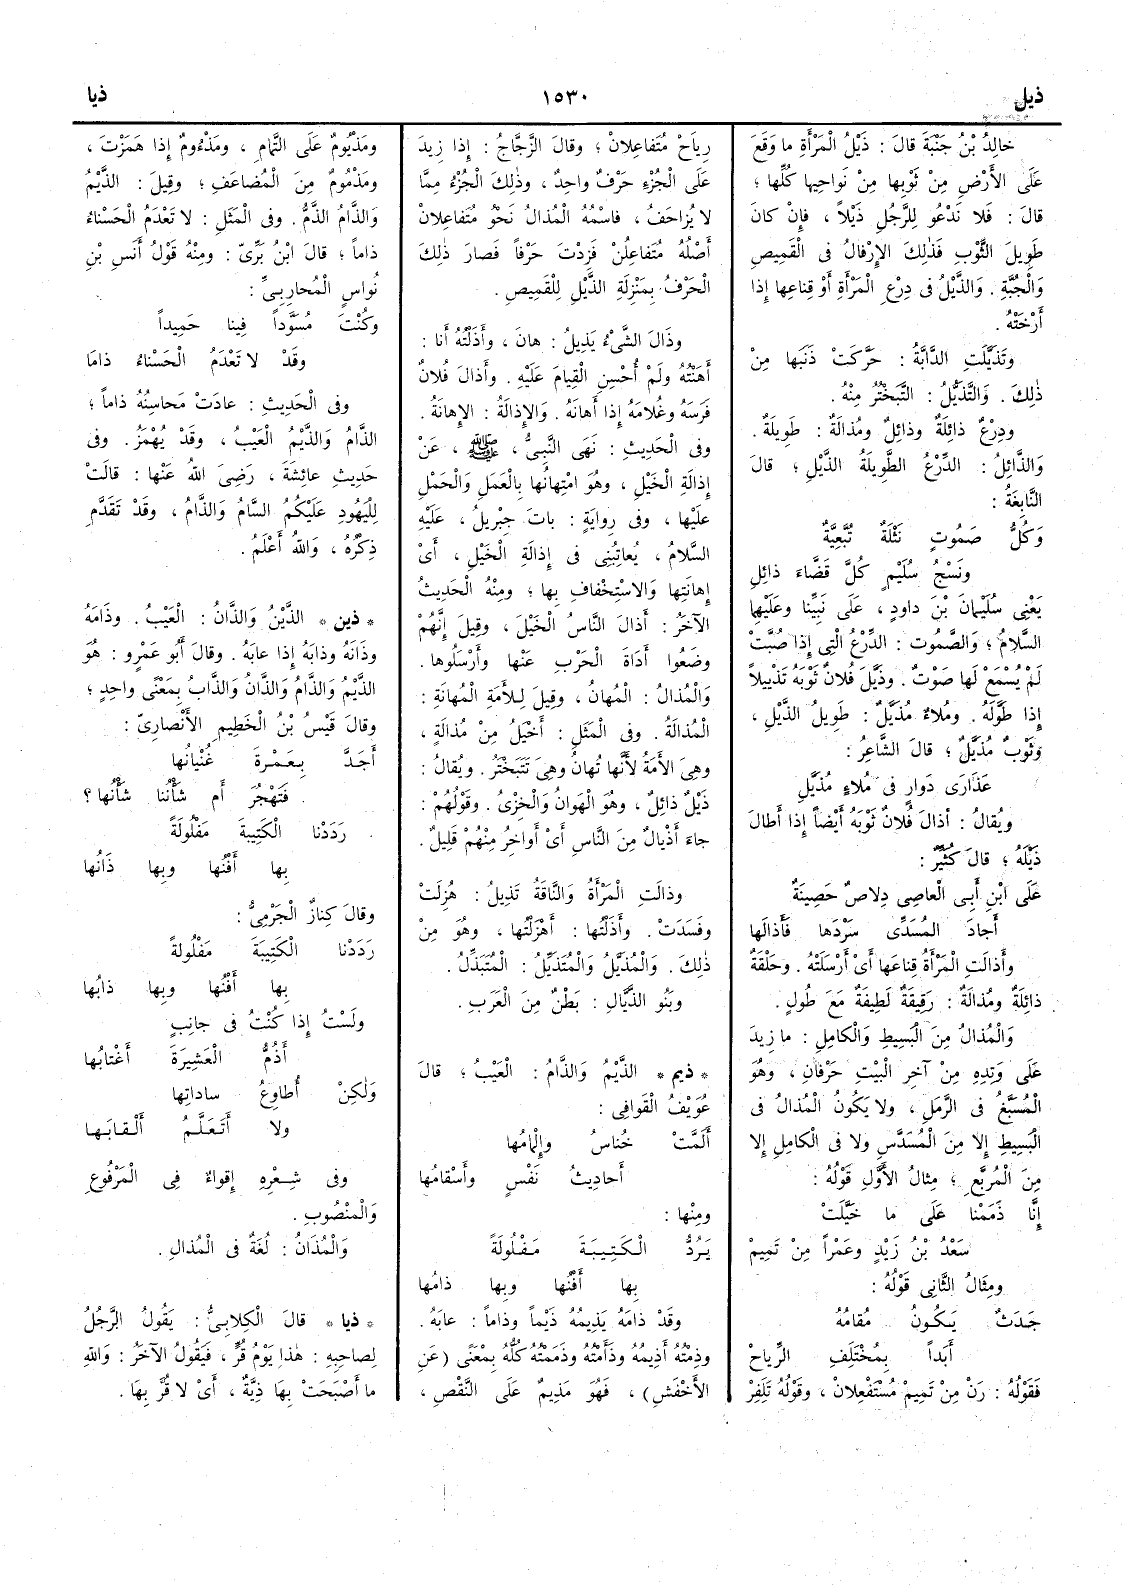 ذيل
١٥٣٠
ذيا
خالِدُ بْنُ جَنْبَةَ قالَ : ذَيْلُ الْمَرْأَةِ ما وَقَعَ
عَلَى الأَرْضِ مِنْ ثَوْبِها مِنْ نَواحِيها كُلِّها ؛
قالَ : فَلا نَدْعُو لِلرَّجُلِ ذَيْلاً ، فَإِنْ كانَ
طَوِيلَ الثَّوْبِ فَذٰلِكَ الإِرْفالُ فى الْقَمِيصِ
وَالْجُبَّةِ . وَالذَّيْلُ فى دِرْعِ الْمَرْأَةِ أَوْ قِناعِها إِذا
أَرْخَتْهُ .
وتَذَيَّلَتِ الدَّابَّةُ : حَرَّكَتْ ذَنَبَها مِنْ
ذٰلِكَ . وَالتَّذَيُّلُ : التَّبَخْتُرُ مِنْهُ .
ودِرْعٌ ذائِلَةٌ وذائِلٌ ومُذالَةٌ : طَوِيلَةٌ .
وَالذَّائِلُ : الدِّرْعُ الطَّوِيلَةُ الذَّيْلِ ؛ قالَ
النَّابِغَةُ :
وَكُلُّ صَمُوتٍ نَثْلَةٌ تُبَّعِيَّةٌ
ونَسْجُ سُلَيْمٍ كُلَّ قَضَّاءَ ذائِلِ
يَعْنِى سُلَيْمانَ بْنَ داودٍ ، عَلَى نَبِيِّنا وعَلَيْهِا
السَّلامُ ؛ وَالصَّمُوت : الدِّرْعُ الَّتِى إِذا صُبَّتْ
لَمْ يُسْمَعْ لَها صَوْتٌ . وذَيَّلَ فُلانٌ ثَوْبَهُ تَذْيِيلاً
إِذا طَوَّلَهُ . ومُلاءٌ مُذَيَّلٌ : طَوِيلُ الذَّيْلِ ،
وَثَوْبٌ مُذَيَّلٌ ؛ قالَ الشَّاعِرُ :
عَذَارَى دَوارٍ فى مُلاءٍ مُذَيَّلِ
ويُقالُ : أَذالَ فُلانٌ ثَوْبَهُ أَيْضاً إِذا أَطالَ
ذَيْلَهُ ؛ قالَ كُثَيِّرٌ :
عَلَى ابْنِ أَبِى الْعاصِى دِلاصٌ حَصِينَةٌ
أَجادَ الْمُسَدِّى سَرْدَها فَأَذالَها
وأَذالَتِ الْمَرْأَةُ قِناعَها أَىْ أَرْسَلَتْهُ . وحَلْقَةٌ
ذائِلَةٌ ومُذالَةٌ : رَقِيقَةٌ لَطِيفَةٌ مَعَ طُولٍ .
وَالْمُذالُ مِنَ الْبَسِيطِ وَالْكامِلِ : ما زِيدَ
عَلَى وَتِدِهِ مِنْ آخِرِ الْبَيْتِ حَرْفانِ ، وَهُوَ
الْمُسَبَّغُ فى الرَّمَلِ ، ولا يَكُونُ الْمُذالُ فى
الْبَسِيطِ إِلا مِنَ الْمُسَدَّسِ ولا فى الْكامِلِ إِلا
مِنَ الْمُرَبَّعِ ؛ مِثالُ الأَوَّلِ قَوْلُهُ :
إِنَّا ذَمَمْنا عَلَى ما خَيَّلَتْ
سَعْدُ بْنُ زَيْدٍ وعَمْراً مِنْ تَمِيمْ
ومِثالُ الثَّانِى قَوْلُهُ :
جَدَثٌ يَكُونُ مُقامُهُ
أَبَداً بِمُخْتَلِفِ الرِّياحْ
فَقَوْلُهُ : رَنْ مِنْ تَمِيمْ مُسْتَفْعِلانْ ، وقَوْلُهُ تَلِفِرْ
رِياحْ مُتَفاعِلانْ ؛ وقالَ الزَّجَّاجُ : إِذا زِيدَ
عَلَى الْجُزْءِ حَرْفٌ واحِدٌ ، وذٰلِكَ الْجُزْءُ مِمَّا
لا يُزاحَفُ ، فاسْمُهُ الْمُذالُ نَحْوُ مُتَفاعِلانْ
أَصْلُهُ مُتَفاعِلُنْ فَزِدْتَ حَرْفاً فَصارَ ذٰلِكَ
الْحَرْفُ بِمَنْزِلَةِ الذَّيْلِ لِلْقَمِيصِ .
وذَالَ الشَّىْءُ يَذِيلُ : هانَ ، وأَذَلْتُهُ أَنا :
أَهَنْتُهُ ولَمْ أُحْسِنِ الْقِيامَ عَلَيْهِ . وأَذالَ فُلانٌ
فَرَسَهُ وغُلامَهُ إِذا أَهانَهُ . وَالإِذالَةُ : الإِهانَةُ .
وفى الْحَدِيثِ : نَهَى النَّبِىُّ ، ﷺ ، عَنْ
إِذالَةِ الْخَيْلِ ، وهُوَ امْتِهانُها بِالْعَمَلِ وَالْحَمْلِ
عَلَيْها ، وفى رِوايَةٍ : باتَ جِبْرِيلُ ، عَلَيْهِ
السَّلامُ ، يُعاتِبُنِى فى إِذالَةِ الْخَيْلِ ، أَىْ
إِهانَتِها وَالاسْتِخْفافِ بِها ؛ ومِنْهُ الْحَدِيثُ
الآخَرُ : أَذالَ النَّاسُ الْخَيْلَ ، وقِيلَ إِنَّهُمْ
وضَعُوا أَداةَ الْحَرْبِ عَنْها وأَرْسَلُوها .
وَالْمُذالُ : الْمُهانُ ، وقِيلَ لِلأَمَةِ الْمُهانَةِ :
الْمُذالَةُ . وفى الْمَثَلِ : أَخْيَلُ مِنْ مُذالَةٍ ،
وهِىَ الأَمَةُ لأَنَّها تُهانُ وهِىَ تَتَبَخْتَرُ . ويُقالُ :
ذَيْلٌ ذائِلٌ ، وهُوَ الْهَوانُ وَالْخِزْىُ . وقَوْلُهُمْ :
جاءَ أَذْيالٌ مِنَ النَّاسِ أَىْ أَواخِرُ مِنْهُمْ قَلِيلٌ .
وذالَتِ الْمَرْأَةُ وَالنَّاقَةُ تَذِيلُ : هُزِلَتْ
وفَسَدَتْ . وأَذَلْتُها : أَهْزَلْتُها ، وهُوَ مِنْ
ذٰلِكَ . وَالْمُذَيَّلُ وَالْمُتَذَيِّلُ : الْمُتَبَذِّلُ .
وبَنُو الذَّيَّالِ : بَطْنٌ مِنَ الْعَرَبِ .
* ذيم * الذَّيْمُ وَالذَّامُ : الْعَيْبُ ؛ قالَ
عُوَيْفُ الْقَوافِى :
أَلَمَّتْ خُناسُ وإِلْمامُها
أَحادِيثُ نَفْسٍ وأَسْقامُها
ومِنْها :
يَرُدُّ الْكَتِيبَةَ مَفْلُولَةً
بِها أَفْنُها وبِها ذامُها
وقَدْ ذامَهُ يَذِيمُهُ ذَيْماً وذاماً : عابَهُ .
وذِمْتُهُ أَذِيمُهُ وذَأَمْتُهُ وذَمَمْتُهُ كُلُّهُ بِمَعْنًى (عَنِ
الأَخْفَشِ) ، فَهُوَ مَذِيمٌ عَلَى النَّقْصِ ،
ومَذْيُومٌ عَلَى التَّمامِ ، ومَذْءُومٌ إِذا هَمَزْتَ ،
ومَذْمُومٌ مِنَ الْمُضاعَفِ ؛ وقِيلَ : الذَّيْمُ
وَالذَّامُ الذَّمُّ . وفى الْمَثَلِ : لا تَعْدَمُ الْحَسْناءُ
ذاماً ؛ قالَ ابْنُ بَرِّىّ : ومِنْهُ قَوْلُ أَنَسِ بْنِ
نُواسٍ الْمُحارِبِىِّ :
وكُنْتَ مُسَوَّداً فِينا حَمِيداً
وقَدْ لا تَعْدَمُ الْحَسْناءُ ذاما
وفى الْحَدِيثِ : عادَتْ مَحاسِنُهُ ذاماً ؛
الذَّامُ وَالذَّيْمُ الْعَيْبُ ، وقَدْ يُهْمَزُ . وفى
حَدِيثِ عائِشَةَ ، رَضِىَ اللهُ عَنْها : قالَتْ
لِلْيَهُودِ عَلَيْكُمُ السَّامُ وَالذَّامُ ، وقَدْ تَقَدَّمِ
ذِكْرُهُ ، وَاللهُ أَعْلَمُ .
* ذين * الذَّيْنُ وَالذَّانُ : الْعَيْبُ . وذَامَهُ
وذَانَهُ وذابَهُ إِذا عابَهُ . وقالَ أَبُو عَمْرٍو : هُوَ
الذَّيْمُ وَالذَّامُ وَالذَّانُ وَالذَّابُ بِمَعْنًى واحِدٍ ؛
وقالَ قَيْسُ بْنُ الْخَطِيمِ الأَنْصارِىّ :
أَجَدَّ بِعَمْرةَ غُنْيانُها
فَتَهْجُرَ أَم شَأْنُنا شَأْنُها ؟
رَدَدْنا الْكَتِيبةَ مَفْلُولَةً
بِها أَفْنُها وبِها ذَانُها
وقالَ كِنازٌ الْجَرْمِىُّ :
رَدَدْنا الْكَتِيبَةَ مَفْلُولةً
بِها أَفْنُها وبِها ذابُها
ولَسْتُ إِذا كُنْتُ فى جانِبٍ
أَذُمُّ الْعَشِيرَةَ أَغْتابُها
وَلٰكِنْ أُطاوِعُ ساداتِها
ولا أَتَعَلَّمُ أَلْقابَها
وفى شِعْرِهِ إِقْواءٌ فِى الْمَرْفُوعِ
وَالْمنْصُوبِ .
وَالْمُذَانُ : لُغَةٌ فى الْمُذالِ .
* ذيا * قالَ الْكِلابِىُّ : يَقُولُ الرَّجُلُ
لِصاحِبِهِ : هٰذا يَوْمُ قُرٍّ ، فَيَقُولُ الآخَرُ : وَاللهِ
ما أَصْبَحَتْ بِهَا ذِيَّةٌ ، أَىْ لا قُرَّ بِهَا .